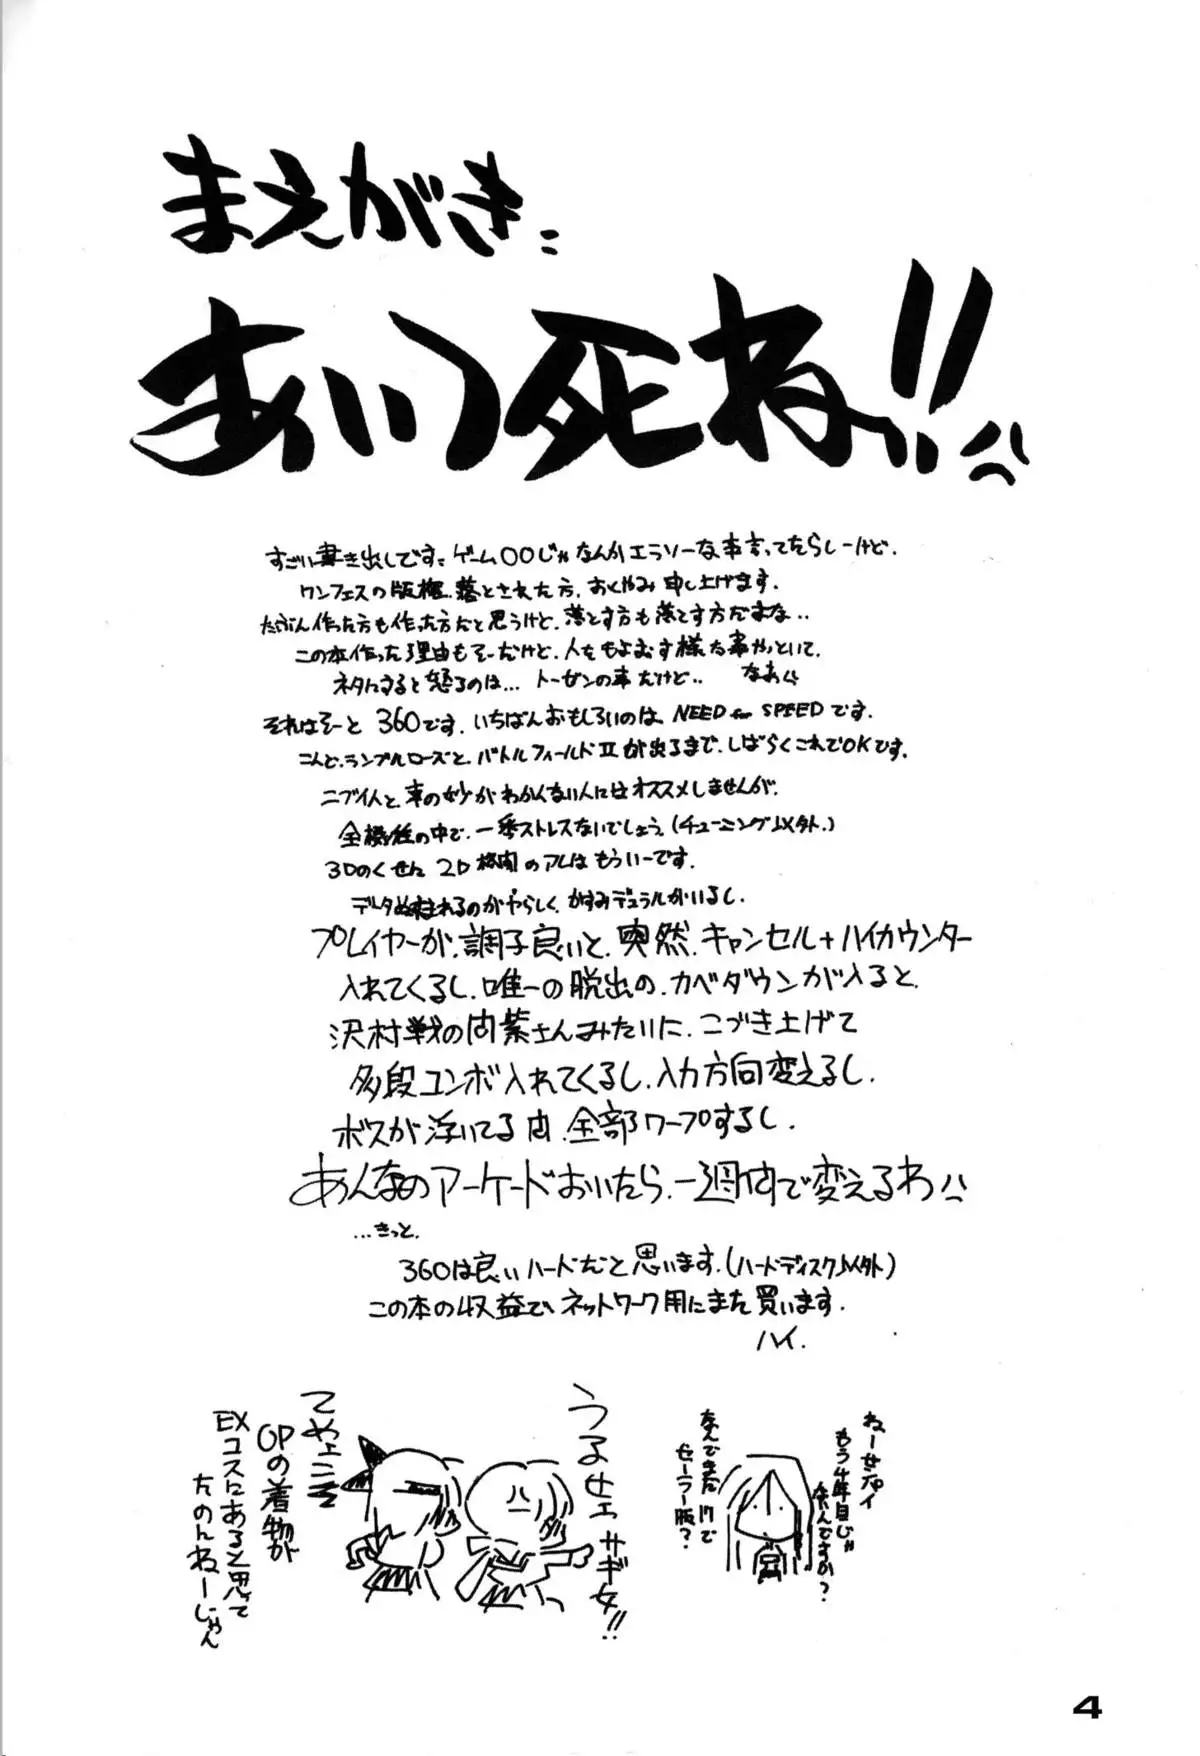 まえがき::
あいつ死ね!!
すごい書き出しです:: ゲーム○○じゃなんかエラソーな事言ってたらしーけど.
ワンフェスの版権.落とされた方.おくやみ申し上げます.
たぶん作った方も作った方だと思うけど.落とす方も落とす方だよな..
この本作った理由もそーだけど.人をもよおす様な事やっといて.
ネタにすると怒るのは... トーゼンの事だけど.. なあ
それはそーと 360です.いちばんおもしろいのは NEED for SPEED です.
こんど.ランブルローズと.バトルフィールドIIが出るまで.しばらくこれでOKです.
ニブイ人と.車の妙がわかんない人にはオススメしませんが.
全機種の中で.一番ストレスないでしょう.(チューニング以外.)
3Dのくせに 2D格闘のアレはもういーです.
データぬすまれるのがやらしく.かすみデュラルがいるし.
プレイヤーが.調子良いと.突然.キャンセル+ハイカウンター
入れてくるし.唯一の脱出の.カベダウンが入ると.
沢村戦の尚紫さんみたいに.こづき上げて
多段コンボ入れてくるし.入力方向変えるし.
ボスが浮いてる内.全部ワープするし.
あんなのアーケードおいたら.一週間で変えるわ
...きっと.
360は良いハードだと思います.(ハードディスク以外)
この本の収益で、ネットワーク用にまた買います.
ハイ.
ねーせんパイ
もう4年目じゃ
ないんですか?
なんでまた17で
セーラー服?
うるせェサギ女!!
てやんでェ
OPの着物が
EXコスにあると思って
たのんねーじゃん
4